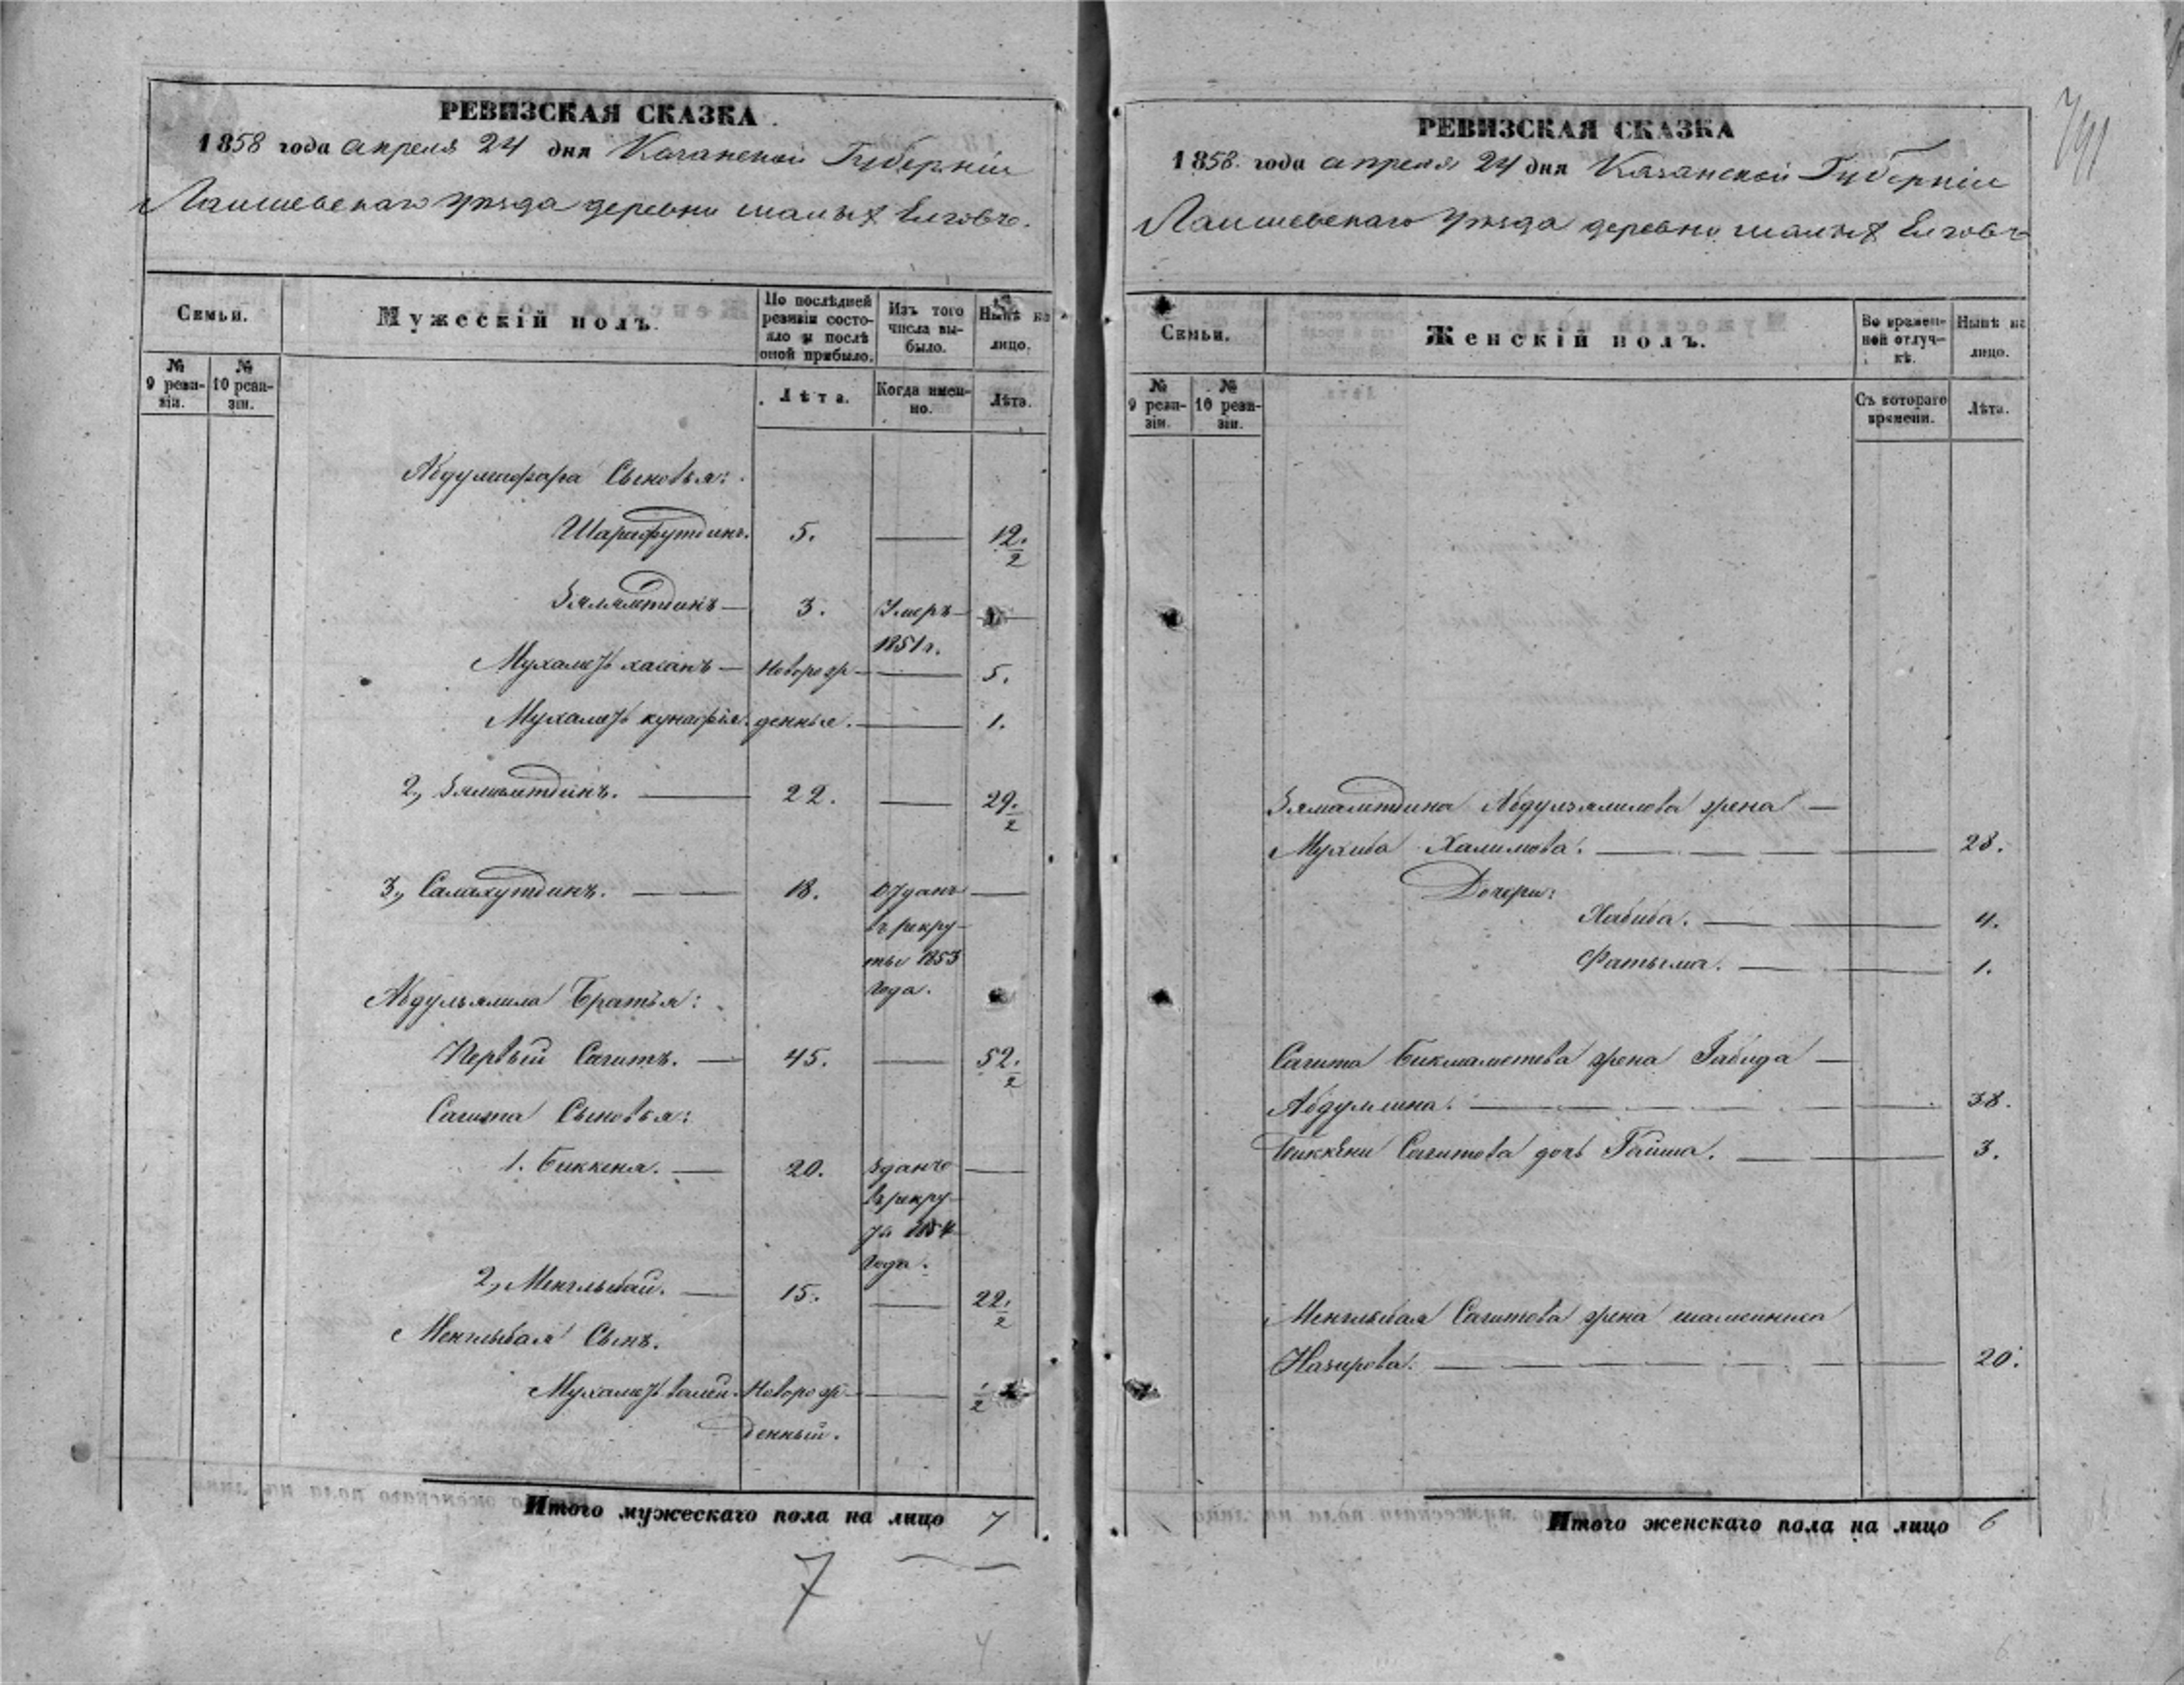 РЕВИЗСКАЯ СКАЗКА
1858 года апреля 24 дня Казанской Губерніи
Лаишевскаго уѣзда деревни малыхъ Елговъ.
Семьи.
Мужескій полъ.
По послѣдней ревизіи состояло и послѣ оной прибыло.
Изъ того числа выбыло.
Нынѣ на лицо.
№ 9 ревизіи.
№ 10 ревизіи.
Лѣта.
Когда именно.
Лѣта.
Абдулгафара Сыновья:
Шарафутдинъ. 5. — 12. 2
Зялялетдинъ — 3. Умеръ 1851 г. —
Мухаметь хасанъ — Новорож — 5.
Мухаметь кунафія. денные. — 1.
2, Зямалетдинъ. — 22. — 29. 2
3, Салахутдинъ. — 18. Отданъ въ рекруты 1853 года. —
Абдулзялила Братья:
Первый Сагитъ. — 45. — 52. 2
Сагита Сыновья:
1. Биккеня. — 20. Зданъ в рекрута 1854 года. —
2, Менглыбай. — 15. — 22. 2
Менглыбая Сынъ.
Мухаметь валей. Новорож — 1/2
денный.
Итого мужескаго пола на лицо 7
7
РЕВИЗСКАЯ СКАЗКА
1858 года апреля 24 дня Казанской Губерніи
Лаишевскаго уѣзда деревни малыхъ Елговъ
Семьи.
Женскій полъ.
Во временной отлучкѣ.
Нынѣ на лицо.
№ 9 ревизіи.
№ 10 ревизіи.
Съ котораго времени.
Лѣта.
Зямалетдина Абдулзялилова жена —
Мухиба Халимова. — 28.
Дочери:
Хабиба. — 4.
Фатыма. — 1.
Сагита Бикмаметева жена Габида —
Абдуллина. — 38.
Биккени Сагитова дочь Гайша. — 3.
Менглыбая Сагитова жена
Назирова. — 20.
Итого женскаго пола на лицо 6